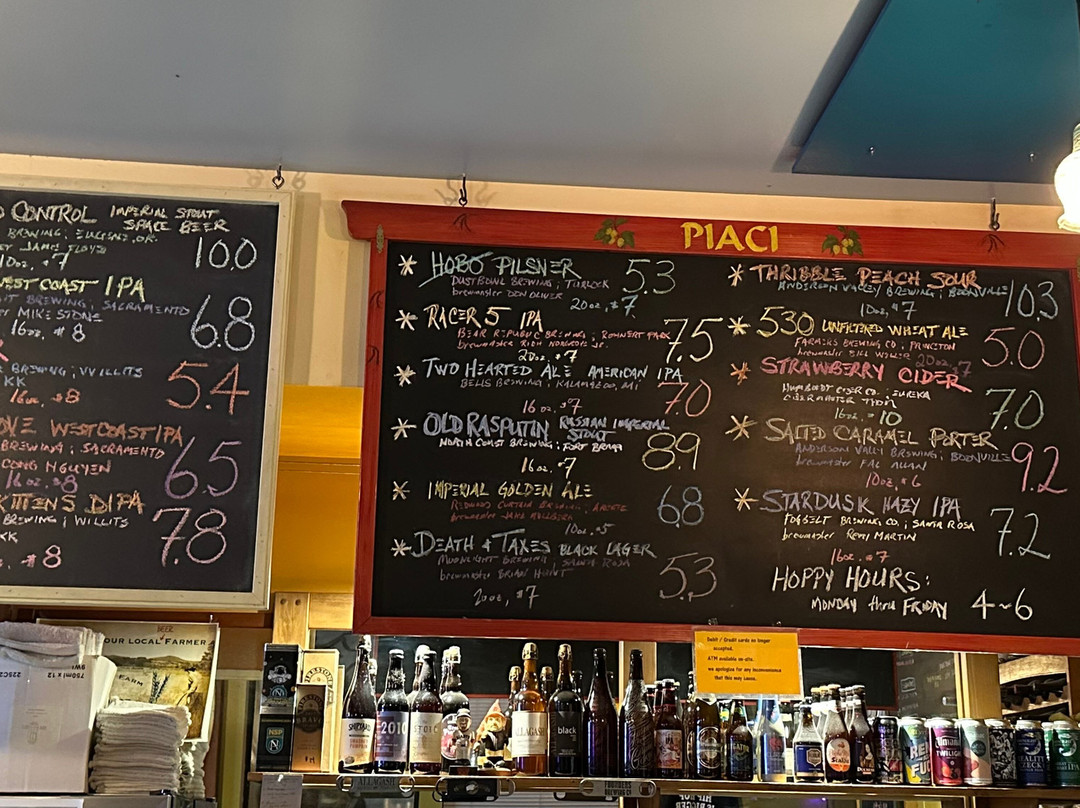 CONTROL IMPERIAL STOUT
SPACE BEER
BREWING; EUGENE, OR.
10oz, $7
10.0
WEST COAST IPA
BREWING; SACRAMENTO
MIKE STONE
16oz, $8
6.8
BREWING; WILLITS
16oz, $8
5.4
WEST COAST IPA
BREWING; SACRAMENTO
CONG NGUYEN
16oz, $8
6.5
KITTENS DIPA
BREWING; WILLITS
$8
7.8
PIACI
* HOBO PILSNER 5.3
DUST BOWL BREWING; TURLOCK
brewmaster DON OLIVER
20oz, $7
* RACER 5 IPA 7.5
BEAR REPUBLIC BREWING; ROHNERT PARK
brewmaster RICH NORGROVE Jr.
20oz, $7
* TWO HEARTED ALE AMERICAN IPA
BELLS BREWING; KALAMAZOO, MI
16oz, $7
7.0
* OLD RASPUTIN RUSSIAN IMPERIAL
STOUT
NORTH COAST BREWING; FORT BRAGG
16oz, $7
8.9
* IMPERIAL GOLDEN ALE
BREWING;
brewmaster
10oz, $5
6.8
* DEATH & TAXES BLACK LAGER
MOONLIGHT BREWING SANTA ROSA
brewmaster BRIAN HUNT
20oz, $7
5.3
* THRIBBLE PEACH SOUR
ANDERSON VALLEY BREWING; BOONVILLE
10oz, $7
10.3
* 530 UNFILTERED WHEAT ALE
FARMERS BREWING CO; PRINCETON
brewmaster BILL
20oz $7
5.0
* STRAWBERRY CIDER
HUMBOLDT CIDER CO; EUREKA
CIDERMASTER TOM
16oz, $10
7.0
* SALTED CARAMEL PORTER
ANDERSON VALLEY BREWING; BOONVILLE
brewmaster FAL ALLEN
10oz, $6
9.2
* STARDUSK HAZY IPA
FOGBELT BREWING CO.; SANTA ROSA
brewmaster REMY MARTIN
16oz, $7
7.2
HOPPY HOURS:
MONDAY thru FRIDAY 4~6
Debit / Credit cards no longer
accepted.
ATM available on-site.
we apologize for any inconvenience
that this may cause.
BEER
OUR LOCAL FARMER
FARM
750ml x 12
2010
STOIC
ALLAGASH
black
TWILIGHT